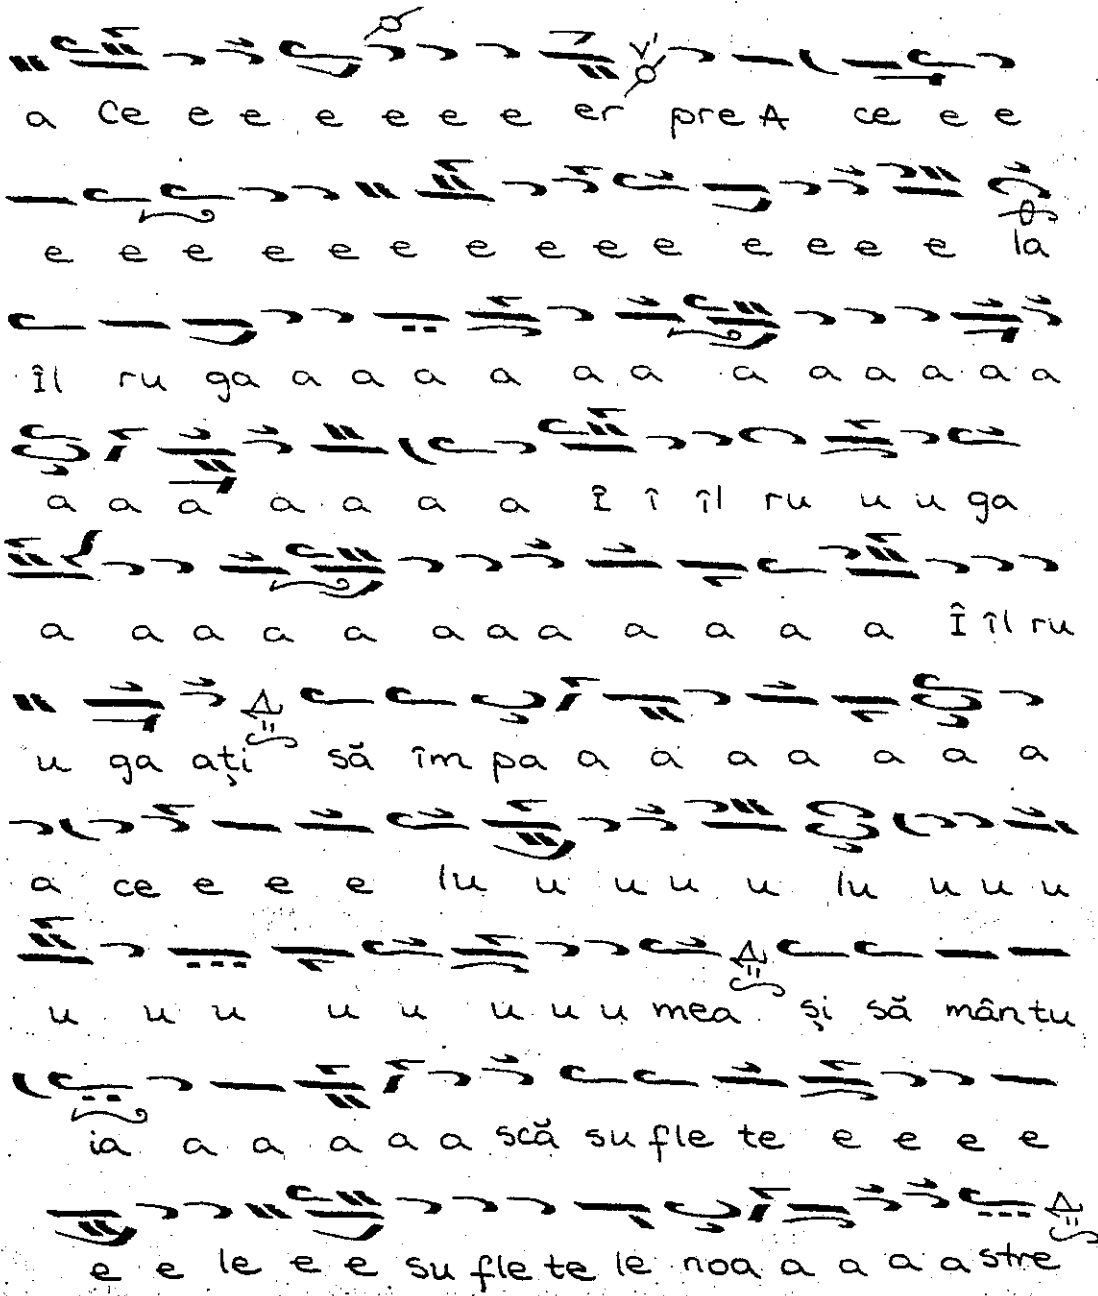 a Ce e e e e e er pre A ce e e
e e e e e e e e e e e e e e la
Îl ru ga a a a a a a a a a a a a
a a a a a a a Î î îl ru u u ga
a a a a a a a a a a a a Î îl ru
u ga ați să îm pa a a a a a a a
a ce e e e lu u u u u lu u u u
u u u u u u u u mea și să mântu
ia a a a a a scă su fle te e e e e
e e le e e su fle te le noa a a a a stre